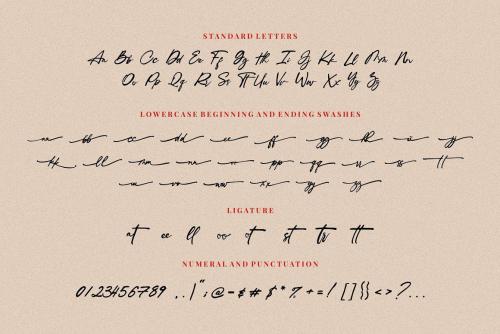 STANDARD LETTERS
Aa Bb Cc Dd Ee Ff Gg Hh Ii Jj Kk Ll Mm Nn
Oo Pp Qq Rr Ss Tt Uu Vv Ww Xx Yy Zz
LOWERCASE BEGINNING AND ENDING SWASHES
aa bb cc dd ee ff gg hh ii jj
kk ll mm nn oo pp qq rr ss tt
uu vv ww xx yy zz
LIGATURE
at ee ll oo ot st tr tt
NUMERAL AND PUNCTUATION
0123456789 ..|";@-$#$*%+=/[]{}<>?...